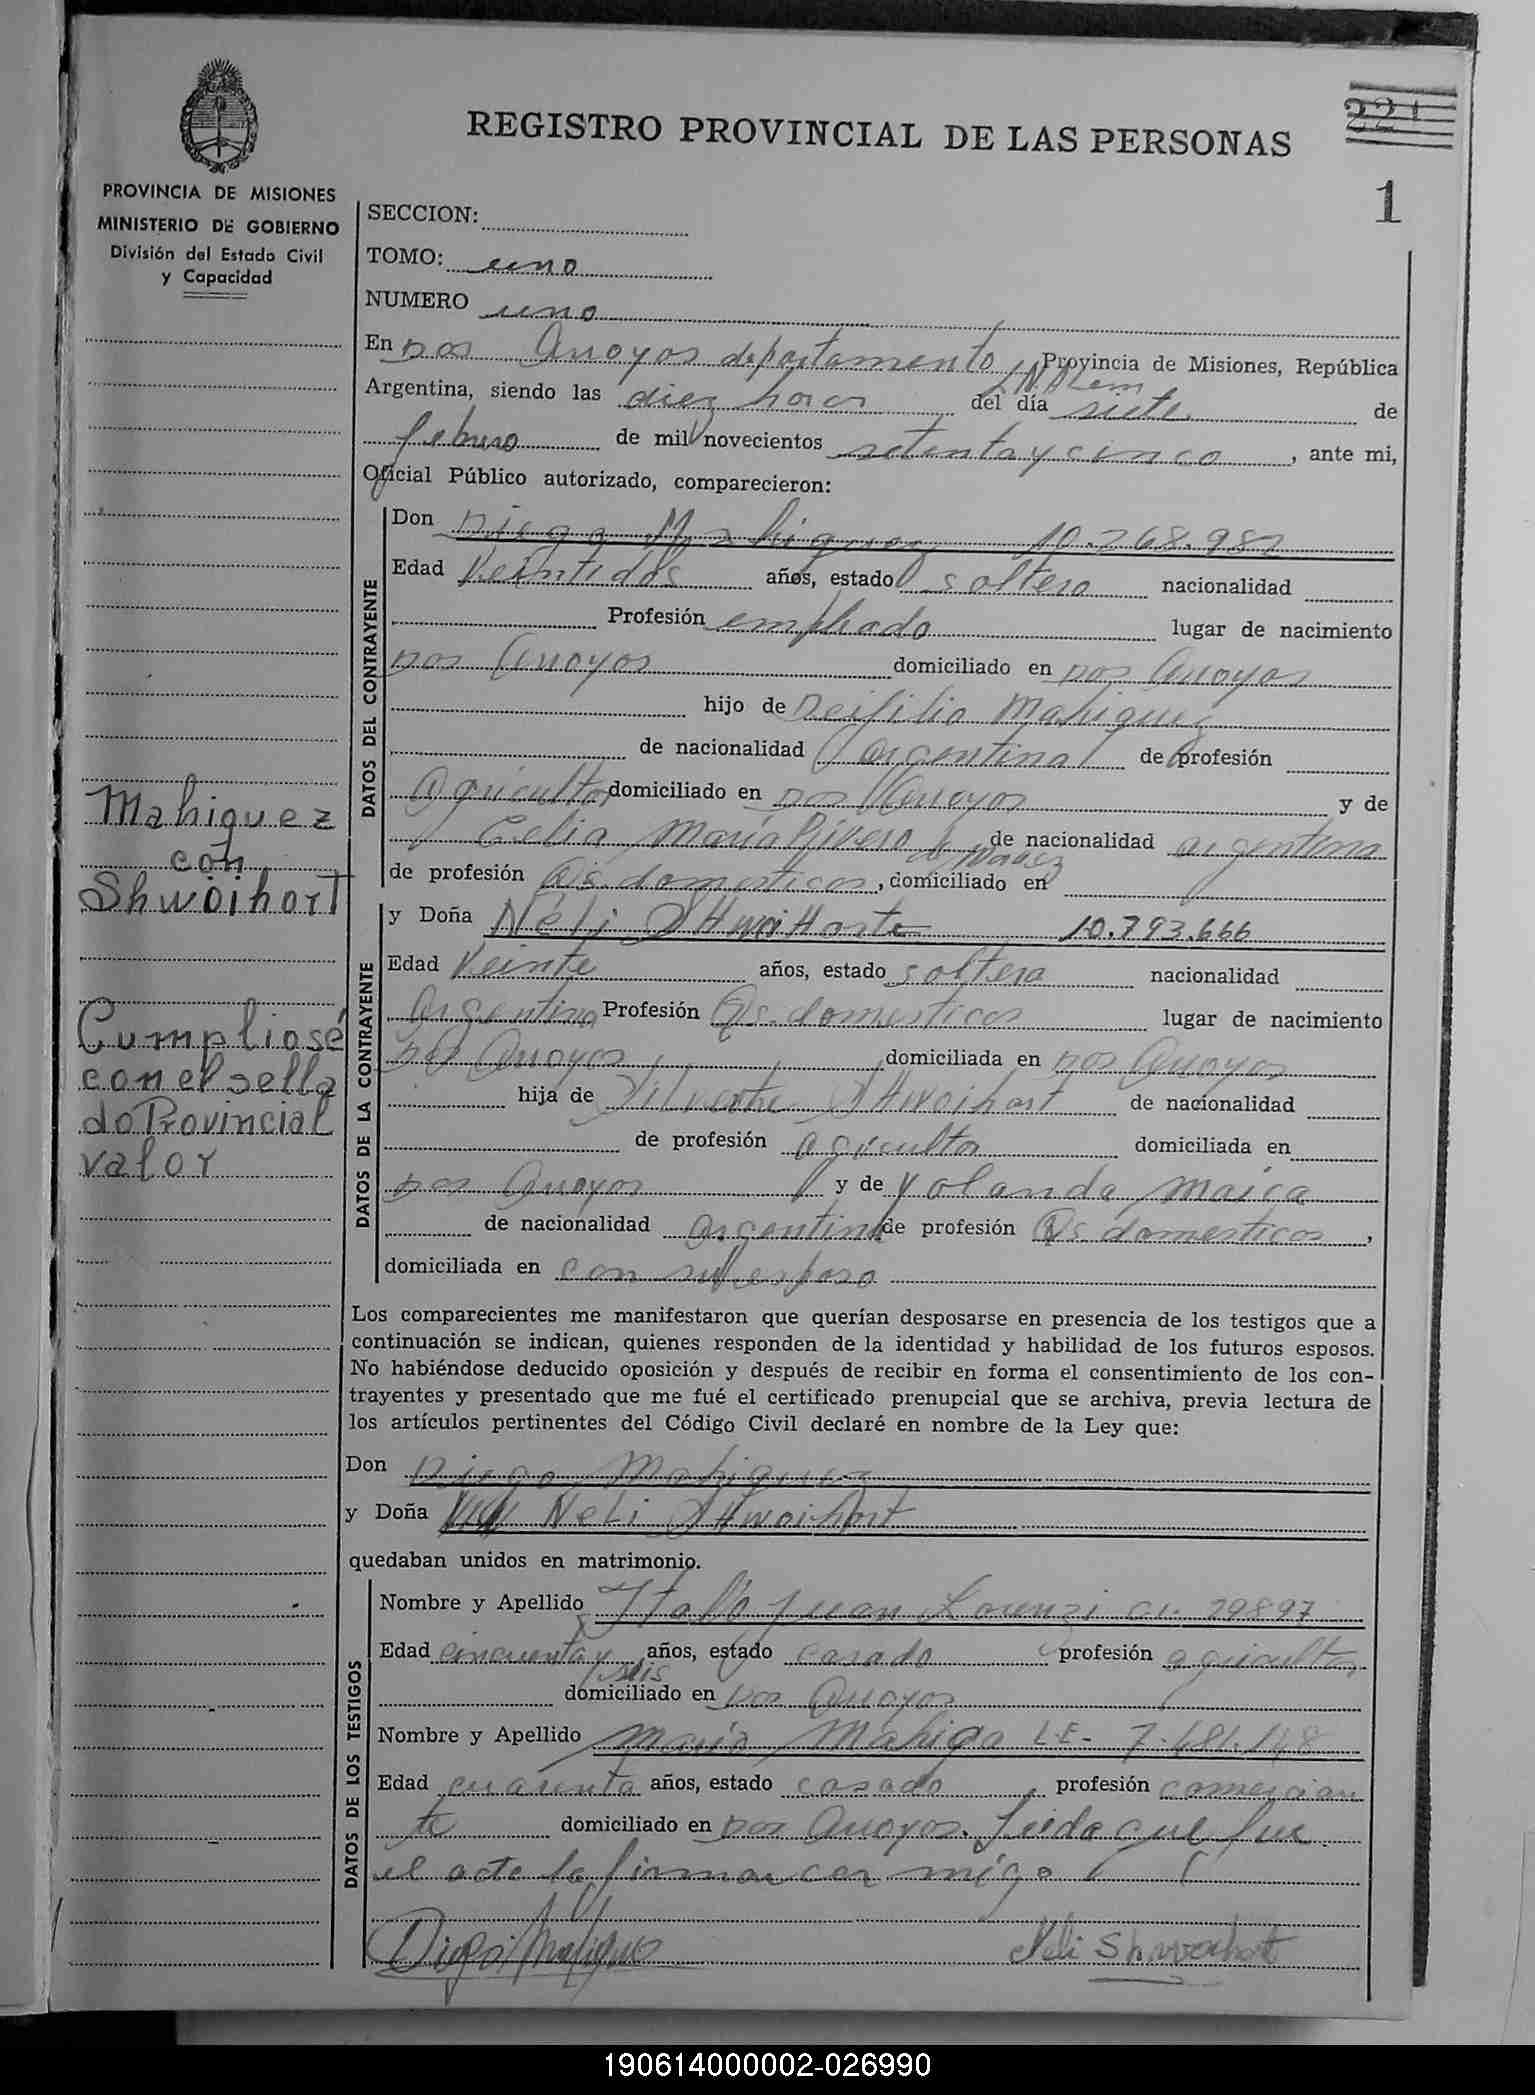 REGISTRO PROVINCIAL DE LAS PERSONAS
221
1
PROVINCIA DE MISIONES
MINISTERIO DE GOBIERNO
División del Estado Civil
y Capacidad
SECCION:
TOMO: uno
NUMERO uno
En Dos Arroyos departamento Provincia de Misiones, República
L.N.Alem
Argentina, siendo las diez horas del día siete de
febrero de mil novecientos setenta y cinco, ante mi,
Oficial Público autorizado, comparecieron:
DATOS DEL CONTRAYENTE
Don Diego Mahiquez 10.768.982
Edad Veintidos años, estado soltero nacionalidad
Profesión empleado lugar de nacimiento
Dos Arroyos domiciliado en Dos Arroyos
hijo de Deifilio Mahiquez
de nacionalidad argentina de profesión
agricultor domiciliado en Dos Arroyos y de
Celia Maria Rivero de nacionalidad argentina
de profesión Qs. domesticos, domiciliado en
Mahiquez
con
Shwoihort
DATOS DE LA CONTRAYENTE
y Doña Neli SHwoiHorte 10.793.666
Edad Veinte años, estado soltera nacionalidad
argentina Profesión Qs. domesticos lugar de nacimiento
Dos Arroyos domiciliada en Dos Arroyos
hija de Silvestre SHwoihort de nacionalidad
de profesión agricultor domiciliada en
Dos Arroyos y de Yolanda Maica
de nacionalidad argentina de profesión Qs. domesticos,
domiciliada en con su esposo
Cumpliosé
con el sella
do Provincial
valor
Los comparecientes me manifestaron que querían desposarse en presencia de los testigos que a
continuación se indican, quienes responden de la identidad y habilidad de los futuros esposos.
No habiéndose deducido oposición y después de recibir en forma el consentimiento de los con-
trayentes y presentado que me fué el certificado prenupcial que se archiva, previa lectura de
los artículos pertinentes del Código Civil declaré en nombre de la Ley que:
Don Diego Mahiquez
y Doña Neli SHwoihort
quedaban unidos en matrimonio.
DATOS DE LOS TESTIGOS
Nombre y Apellido Italo Juan Lorenzi CI. 29897
Edad cincuenta y seis años, estado casado profesión agricultor
domiciliado en Dos Arroyos
Nombre y Apellido Mario Mahiqa L.E- 7.481.148
Edad cuarenta años, estado casado profesión comercian
te domiciliado en Dos Arroyos. Leida que fue
el acta la firman con migo
Diego Mahiquez
Neli Shwoihort
190614000002-026990